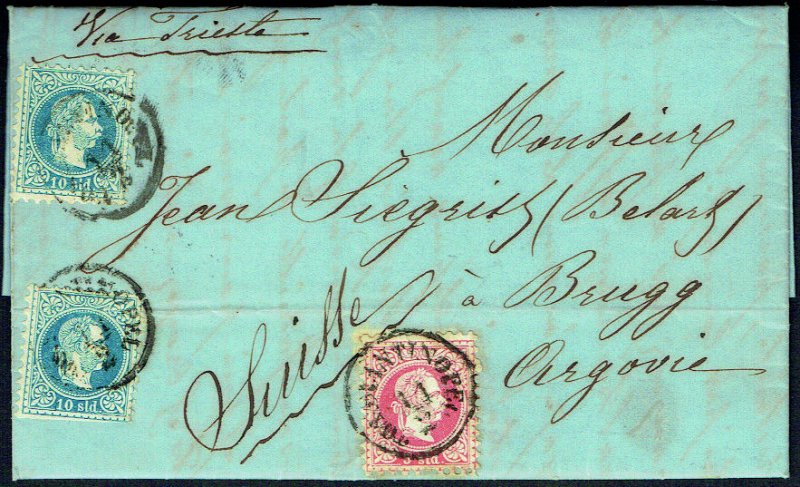 Via Trieste
10 sld
Monsieur
Jean Siegrist (Belart)
10 sld
Suisse
à Brugg
Argovie
5 sld